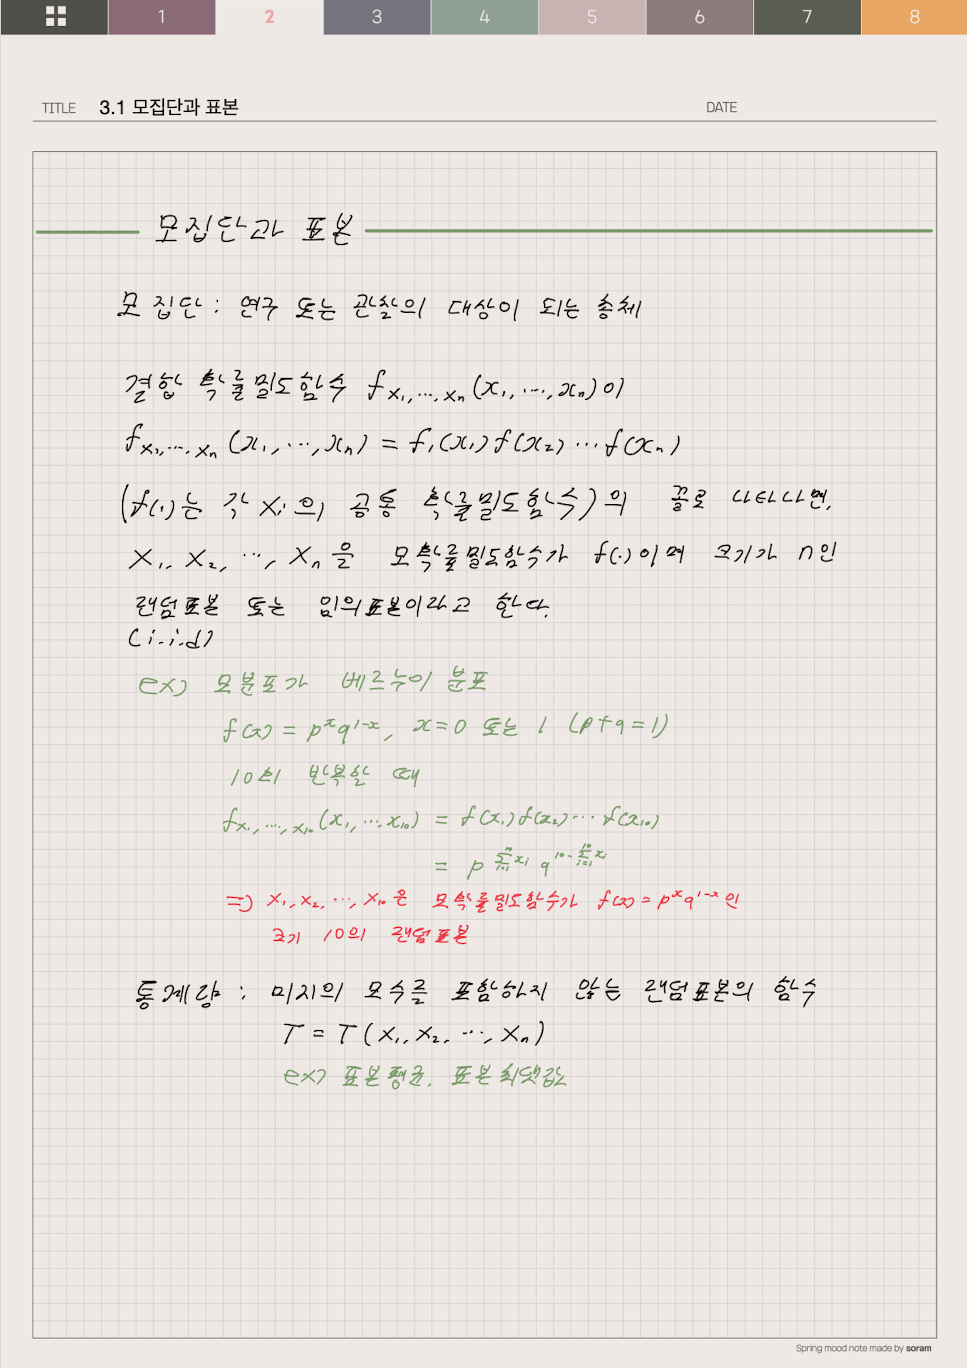 1 2 3 4 5 6 7 8
TITLE 3.1 모집단과 표본 DATE
모집단과 표본
모집단 : 연구 또는 관찰의 대상이 되는 총체
결합 확률밀도함수 f_{X₁,…,Xₙ}(x₁,…,xₙ)이
f_{X₁,…,Xₙ}(x₁,…,xₙ) = f₁(x₁)f(x₂)…f(xₙ)
(f(·)는 각 Xᵢ의 공통 확률밀도함수)의 꼴로 나타나면,
X₁, X₂, …, Xₙ을 모확률밀도함수가 f(·)이며 크기가 n인
랜덤표본 또는 임의표본이라고 한다.
(i.i.d)
ex) 모분포가 베르누이 분포
f(x) = pˣq¹⁻ˣ, x=0 또는 1 (p+q=1)
10회 반복할 때
f_{X₁,…,X₁₀}(x₁,…x₁₀) = f(x₁)f(x₂)…f(x₁₀)
= p^{∑_{i=1}^{10} xᵢ} q^{10-∑_{i=1}^{10} xᵢ}
=> X₁, X₂, …, X₁₀은 모확률밀도함수가 f(x)=pˣq¹⁻ˣ인
크기 10의 랜덤표본
통계량 : 미지의 모수를 포함하지 않는 랜덤표본의 함수
T = T(X₁, X₂, …, Xₙ)
ex) 표본평균, 표본최댓값
Spring mood note made by soram